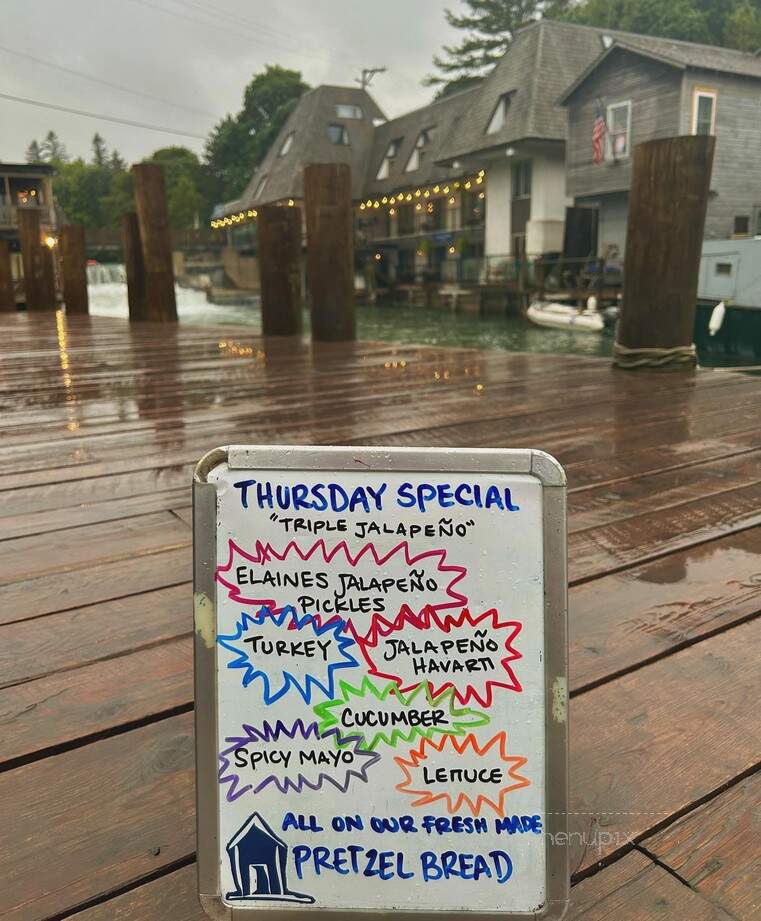 THURSDAY SPECIAL
"TRIPLE JALAPEÑO"
ELAINES JALAPEÑO
PICKLES
TURKEY
JALAPEÑO
HAVARTI
CUCUMBER
SPICY MAYO
LETTUCE
ALL ON OUR FRESH MADE
PRETZEL BREAD
menupix